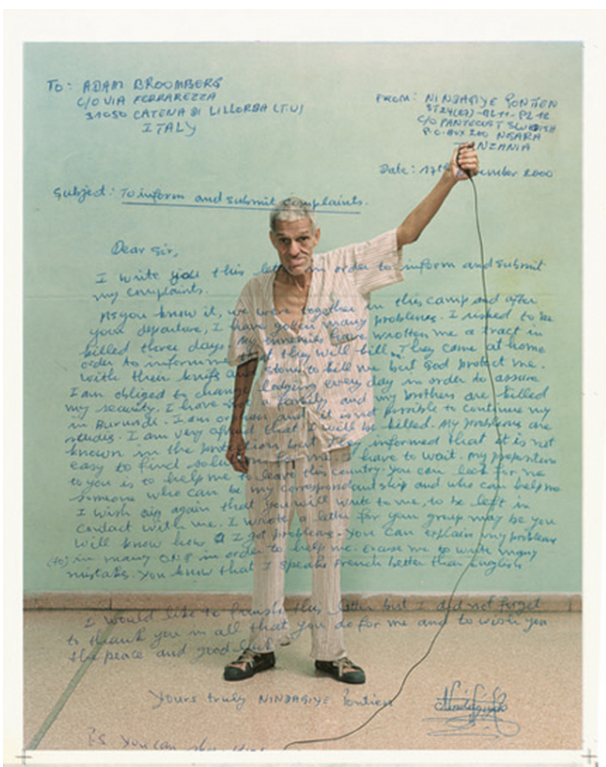 TO: ADAM BROOMBERG
C/O VIA FERRAREZZA
31050 CATENA DI LILLORBA (T.V)
ITALY
FROM: NINDAGIYE PONTIEN
C/O PANTECOST SWEDISH
P.O. BOX 200 NGARA
TANZANIA
Date: 17th December 2000
Subject: To inform and submit complaints.
Dear Sir,
I write you this letter in order to inform and submit
my complaints.
As you know it, we were together in this camp and after
your departure, I have gotten many problems. I risked to be
killed three days. My ennemies have wrotten me a tract in
order to inform me that they will kill me. They come at home
with their knifs and stons to kill me but God protect me.
I am obliged to change lodging every day in order to assure
my security. I have no family, and my brothers are killed
in Burundi. I am orphan and it is not possible to continue my
studies. I am very afraid that I will be killed. My problems are
known in the protection but they informed that it is not
easy to find solution for me. I have to wait. My preposition
to you is to help me to leave this country. You can look for me
someone who can be my correspondantship and who can help me
I wish sir again that you will write to me, to be left in
contact with me. I wrote letter for your group may be you
will know how I got problems. You can explain my problems
(to) in many ONG in order to help me. Excuse me to write many
mistakes. You know that I speaks French better than English
I would like to finish this letter but I did not forget
to thank you in all that you do for me and to wish you
the peace and good luck.
Yours truly NINDAGIYE Pontien
P.S. You can